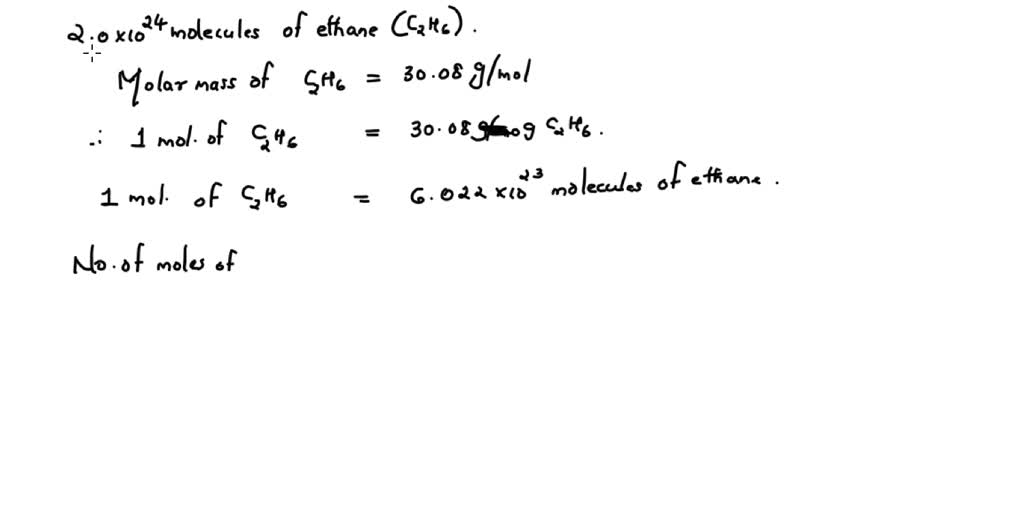 2.0 x 10^24 molecules of ethane (C2H6).
Molar mass of C2H6 = 30.08 g/mol
∴ 1 mol. of C2H6 = 30.08 g C2H6.
1 mol. of C2H6 = 6.022 x 10^23 molecules of ethane.
No. of moles of